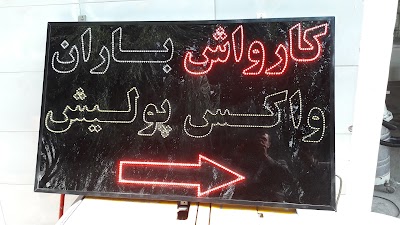 کارواش باران
واکس پولیش